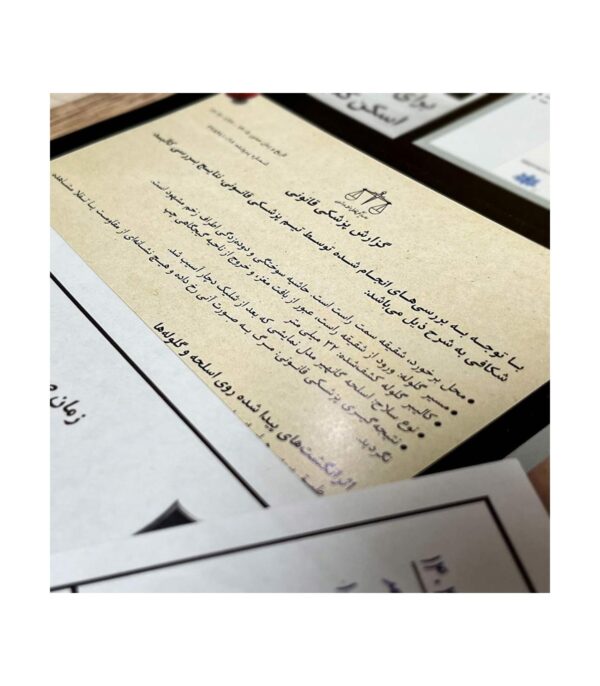 برای
اسکن ک
گزارش پزشکی قانونی
با توجه به بررسی‌های انجام شده توسط تیم پزشکی قانونی، نتایج بررسی کالبد
شکافی به شرح ذیل می‌باشد:
• محل برخورد، شقیقه سمت راست است، حاشیه سوختگی و دودزدگی اطراف زخم مشهود است.
• مسیر گلوله: ورود از شقیقه راست، عبور از بافت مغز، و خروج از ناحیه گیجگاهی چپ
• کالیبر گلوله کشف‌شده: ۳۲ میلی متر
• نوع سلاح: اسلحه گلنهیر مدل نمایشی که بعد از شلیک دچار آسیب شد.
• نتیجه‌گیری پزشکی قانونی: مرگ به صورت آنی رخ داده و هیچ نشانه‌ای از مقاومت یا تقلا مشاهده
نگردید.
اثر انگشت‌های پیدا شده روی اسلحه و گلوله‌ها
زمان